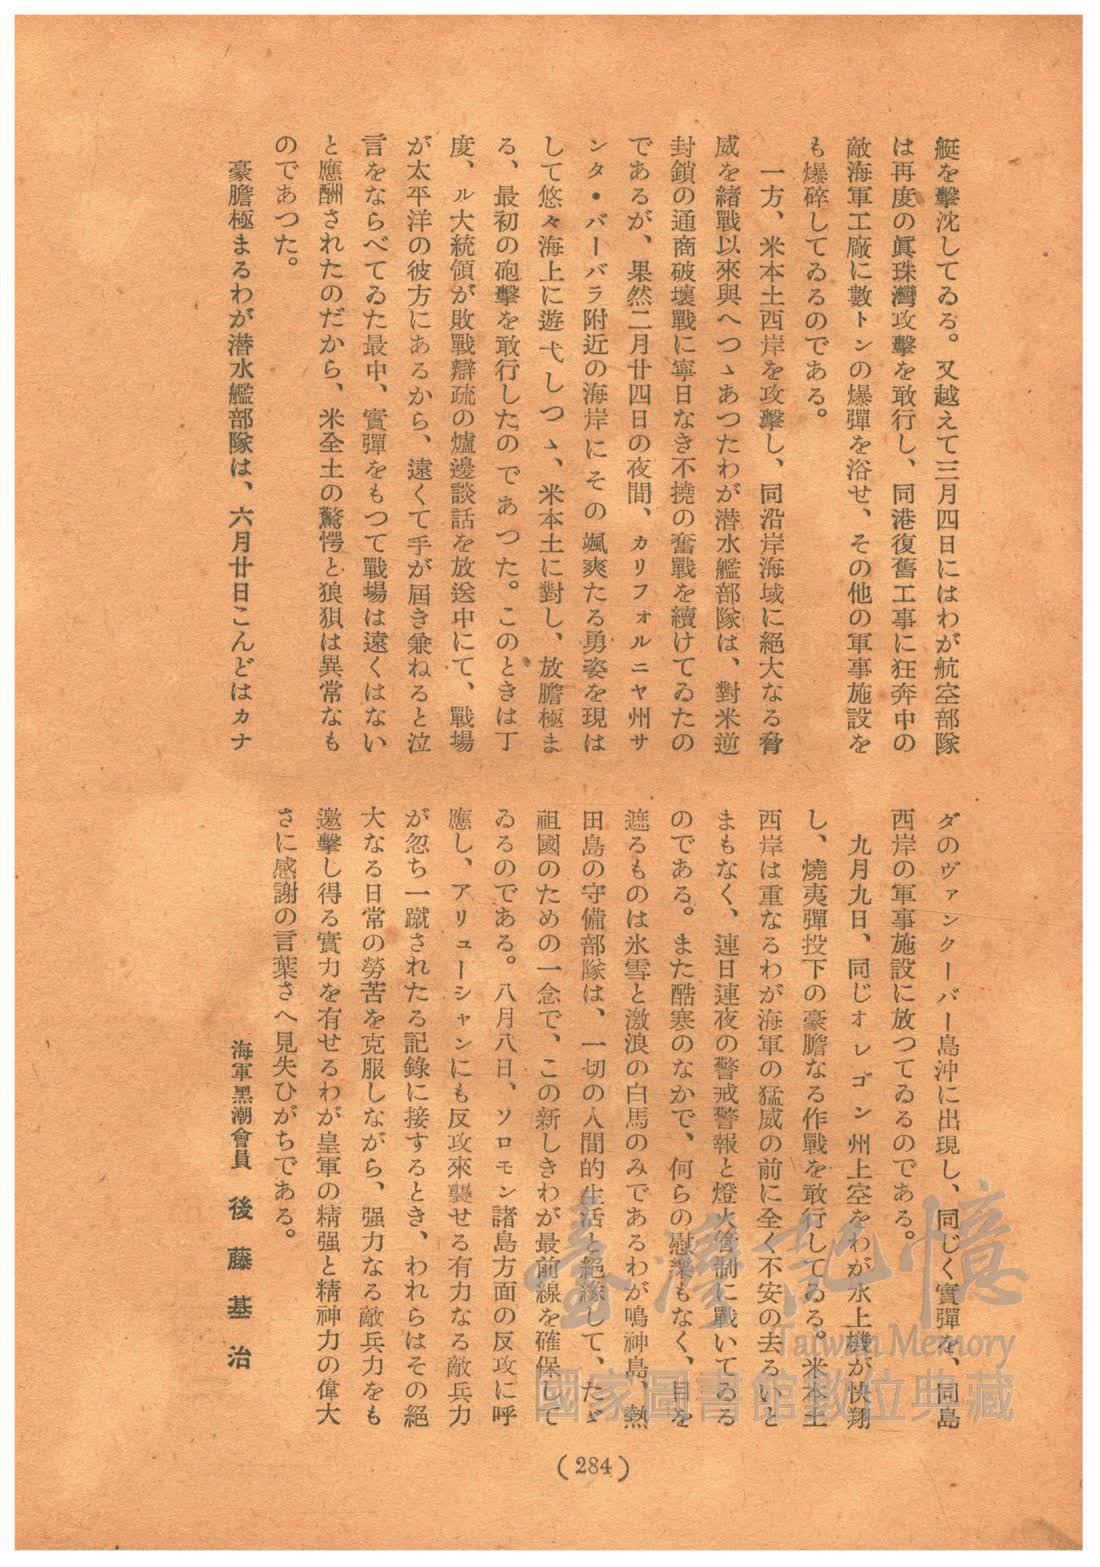 艇を擊沈してゐる。又越えて三月四日にはわが航空部隊
は再度の眞珠灣攻擊を敢行し、同港復舊工事に狂奔中の
敵海軍工廠に數トンの爆彈を浴せ、その他の軍事施設を
も爆碎してゐるのである。
一方、米本土西岸を攻擊し、同沿岸海域に絕大なる脅
威を緒戰以來與へつゝあつたわが潜水艦部隊は、對米逆
封鎖の通商破壞戰に寧日なき不撓の奮戰を續けてゐたの
であるが、果然二月廿四日の夜間、カリフォルニヤ州サ
ンタ・バーバラ附近の海岸にその颯爽たる勇姿を現は
して悠々海上に遊弋しつゝ、米本土に對し、放膽極ま
る、最初の砲擊を敢行したのであつた。このときは丁
度、ル大統領が敗戰辯疏の爐邊談話を放送中にて、戰場
が太平洋の彼方にあるから、遠くて手が屆き兼ねると泣
言をならべてゐた最中、實彈をもつて戰場は遠くはない
と應酬されたのだから、米全土の驚愕と狼狽は異常なも
のであつた。
豪膽極まるわが潜水艦部隊は、六月廿日こんどはカナ
ダのヴァンクーバー島沖に出現し、同じく實彈を、同島
西岸の軍事施設に放つてゐるのである。
九月九日、同じオレゴン州上空をわが水上機が快翔
し、燒夷彈投下の豪膽なる作戰を敢行してゐる。米本土
西岸は重なるわが海軍の猛威の前に全く不安の去るいと
まもなく、連日連夜の警戒警報と燈火管制に戰いてゐる
のである。また酷寒のなかで、何らの慰樂もなく、目を
遮るものは氷雪と激浪の白馬のみであるわが鳴神島、熱
田島の守備部隊は、一切の人間的生活と絕緣して、たゞ
祖國のための一念で、この新しきわが最前線を確保して
ゐるのである。八月八日、ソロモン諸島方面の反攻に呼
應し、アリューシャンにも反攻來襲せる有力なる敵兵力
が忽ち一蹴されたる記錄に接するとき、われらはその絕
大なる日常の勞苦を克服しながら、强力なる敵兵力をも
邀擊し得る實力を有せるわが皇軍の精强と精神力の偉大
さに感謝の言葉さへ見失ひがちである。
海軍黑潮會員　後藤基治
(284)
臺灣記憶
Taiwan Memory
國家圖書館數位典藏